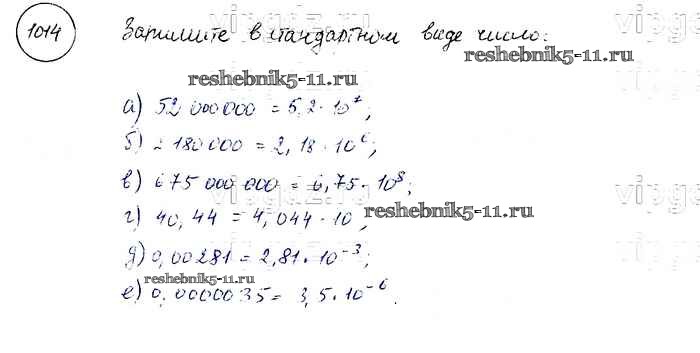 1014 Запишите в стандартном виде число:
reshebnik5-11.ru
а) 52 000000 = 5,2 · 10⁷;
б) 2 180 000 = 2,18 · 10⁶;
в) 675 000 000 = 6,75 · 10⁸;
г) 40,44 = 4,044 · 10, reshebnik5-11.ru
д) 0,00281 = 2,81 · 10⁻³;
reshebnik5-11.ru
е) 0,0000035 = 3,5 · 10⁻⁶.
vipgdz